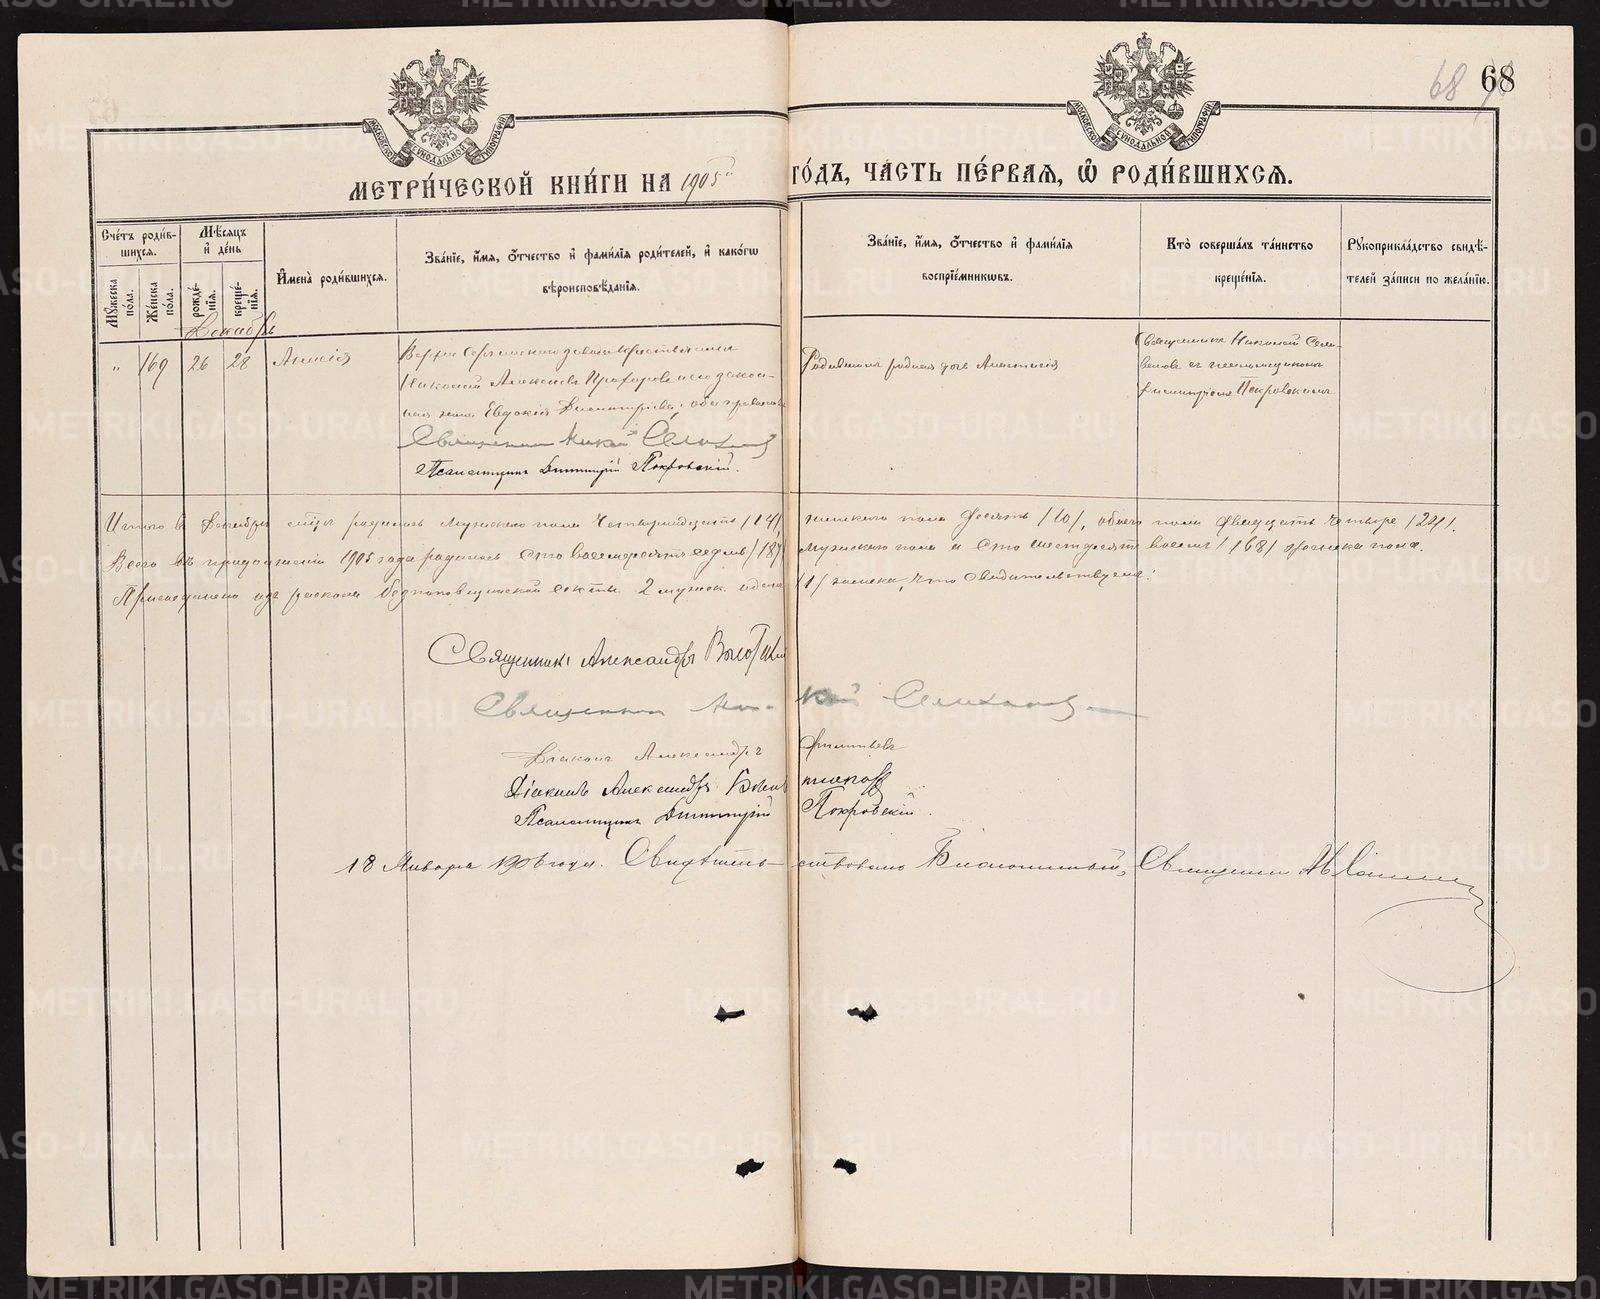 68 68
МОСКОВСКОЙ СѴНОДАЛЬНОЙ ТИПОГРАФІИ
МОСКОВСКОЙ СѴНОДАЛЬНОЙ ТИПОГРАФІИ
МЕТРИ́ЧЕСКОЙ КНИ́ГИ НА 1905й ГО́ДЪ, ЧА́СТЬ ПЕ́РВАЯ, Ѡ РОДИ́ВШИХСЯ.
Сче́тъ роди́в-
шихся.
Мѹжеска по́ла.
Же́нска по́ла.
Мѣ́сяцъ
и де́нь
рожде́-
нїя.
креще́-
нїя.
Имена̀ роди́вшихся.
Зва́нїе, и́мя, ѻ́тчество и фами́лїя роди́телей, и како́гѡ
вѣроисповѣ́данїя.
Зва́нїе, и́мя, ѻ́тчество и фами́лїя
воспрїе́мникѡвъ.
Кто̀ соверша́лъ та́инство
креще́нїя.
Рѹкоприкла́дство свидѣ́-
телей за́писи по жела́нїю.
Декабрь
" 169 26 28 Анисія
Верхне Сергинскаго завода крестьянинъ
Николай Алексѣевъ Прохоровъ и его закон-
ная жена Евдокія Димитріева; оба православн
Священникъ Николай Селиванов
Псаломщикъ Димитрій Покровскій.
родная дочь Анастасія
Священникъ Николай Сели-
вановъ съ псаломщикомъ
Димитріемъ Покровскимъ
Итого въ Декабрѣ мѣсяцѣ родилось мужескаго пола четырнадцать /14/ женскаго пола десять /10/, обоего пола двадцать четыре /24/.
Всего въ продолженіи 1905 года родилось сто восемьдесятъ семь /187/ мужескаго пола и сто шестьдесятъ восемь /168/ женска пола.
Присоединено изъ раскола безпоповщинской секты 2 мужск. одна /1/ женска, что свидѣтельствуемъ:
Священникъ Александръ
Священникъ Николай Селиванов
Діаконъ Александръ
Діаконъ Александръ
Псаломщикъ Димитрій Покровскій.
18 Января 1906 года. Свидѣтельствовалъ Благочинный, Священникъ
METRIKI.GASO-URAL.RU